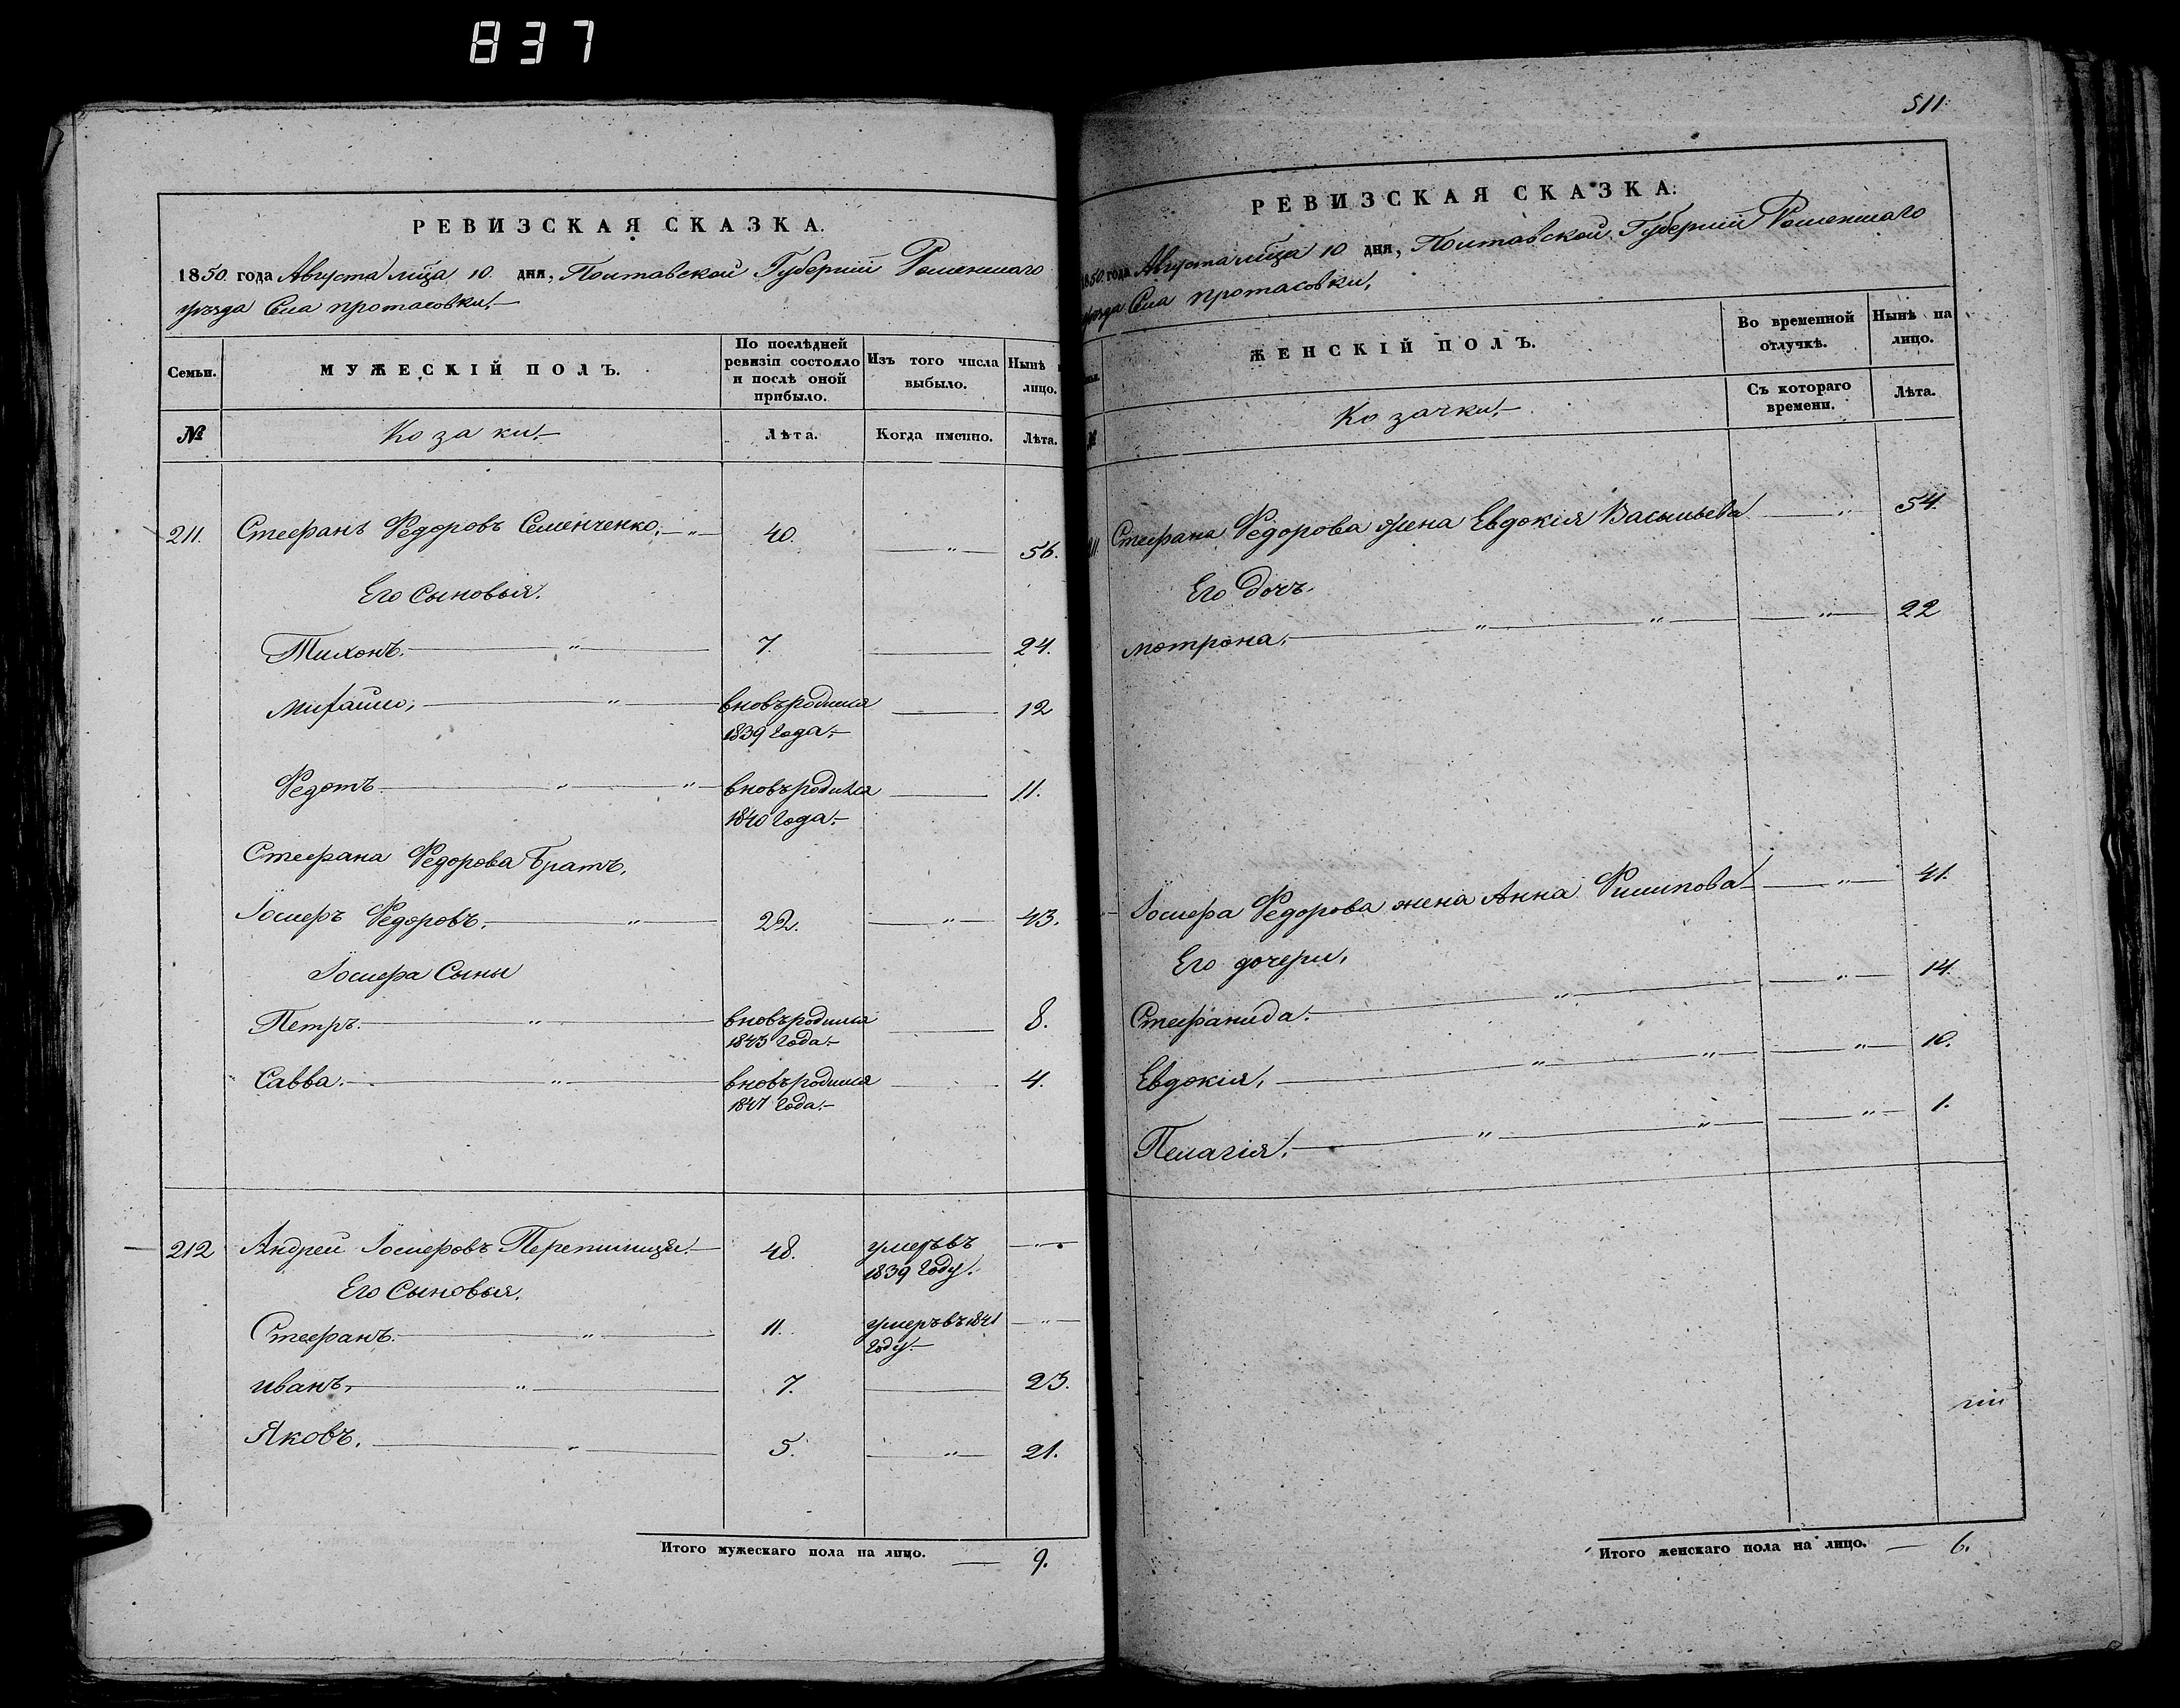 837
РЕВИЗСКАЯ СКАЗКА.
1850 года Августа мца 10 дня, Полтавской Губерніи Роменскаго
уѣзда Села протасовки.
Семьи.
МУЖЕСКІЙ ПОЛЪ.
По послѣдней ревизіи состояло и послѣ оной прибыло.
Изъ того числа выбыло.
Нынѣ лицо.
№
Козаки.
Лѣта.
Когда именно.
Лѣта.
211. Стефанъ Федоровъ Семенченко. 40. 56.
Его Сыновья.
Тихонъ. 7. 24.
михайло, вновь родился 12
1839 года.
Федотъ вновь родился 11.
1840 года.
Стефана Федорова Братъ,
Іосифъ Федоровъ. 22. 43.
Іосифа Сыны
Петръ. вновь родился 8.
1843 года.
Савва. вновь родился 4.
1847 года.
212 Андрей Іосифовъ Перепилица. 48. умеръ въ
1839 году.
Его Сыновья.
Стефанъ. 11. умеръ въ 1841
году.
иванъ, 7. 23.
Яковъ. 5. 21.
Итого мужескаго пола на лицо. 9.
511
РЕВИЗСКАЯ СКАЗКА.
1850 года Августа мца 10 дня, Полтавской Губерніи Роменскаго
уѣзда Села протасовки,
ЖЕНСКІЙ ПОЛЪ.
Во временной отлучкѣ.
Нынѣ на лицо.
Козачки.
Съ котораго времени.
Лѣта.
211. Стефана Федорова жена Евдокія Васильева 54.
Его дочь.
мотрона. 22
Іосифа Федорова жена Анна Филипова 41.
Его дочери,
Стефанида. 14.
Евдокія, 10.
Пелагія. 1.
Итого женскаго пола на лицо. 6.